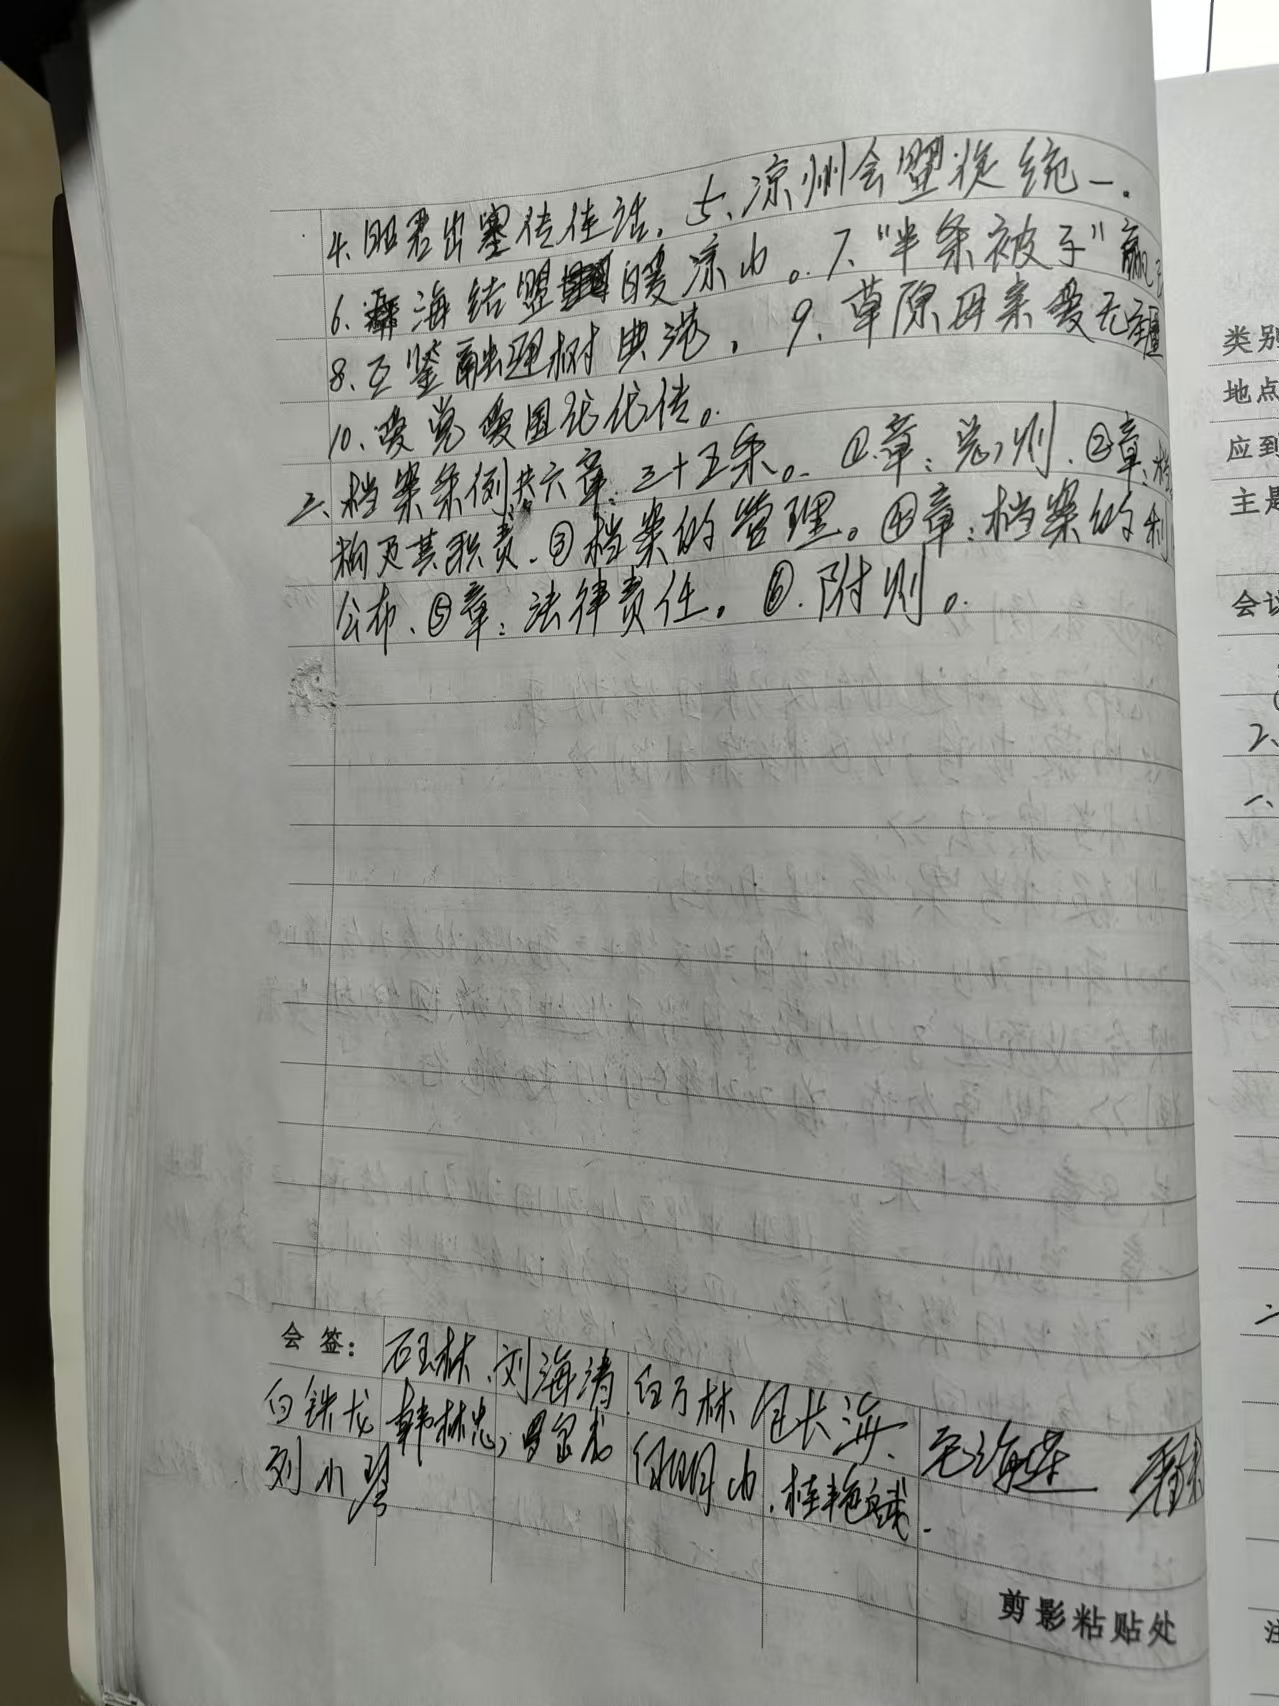 4、昭君出塞传佳话。5、凉州会盟促统一。
6、海结盟暖凉山。7、"半条被子"
8、互鉴融通树典范。9、草原母亲爱无疆
10、爱党爱国代代传。
三、档案条例共六章，三十五条。①章：总则、②章：档
构及其职责、③档案的管理。④章：档案的利
公布、⑤章：法律责任。⑥、附则。
会签：
石玉林、刘海涛 白万林 包长海、
白铁龙 韩林忠，
刘小琴 明山、桂艳斌
剪影粘贴处
类别
地点
应到
主是
会议
2、
一、
二
注